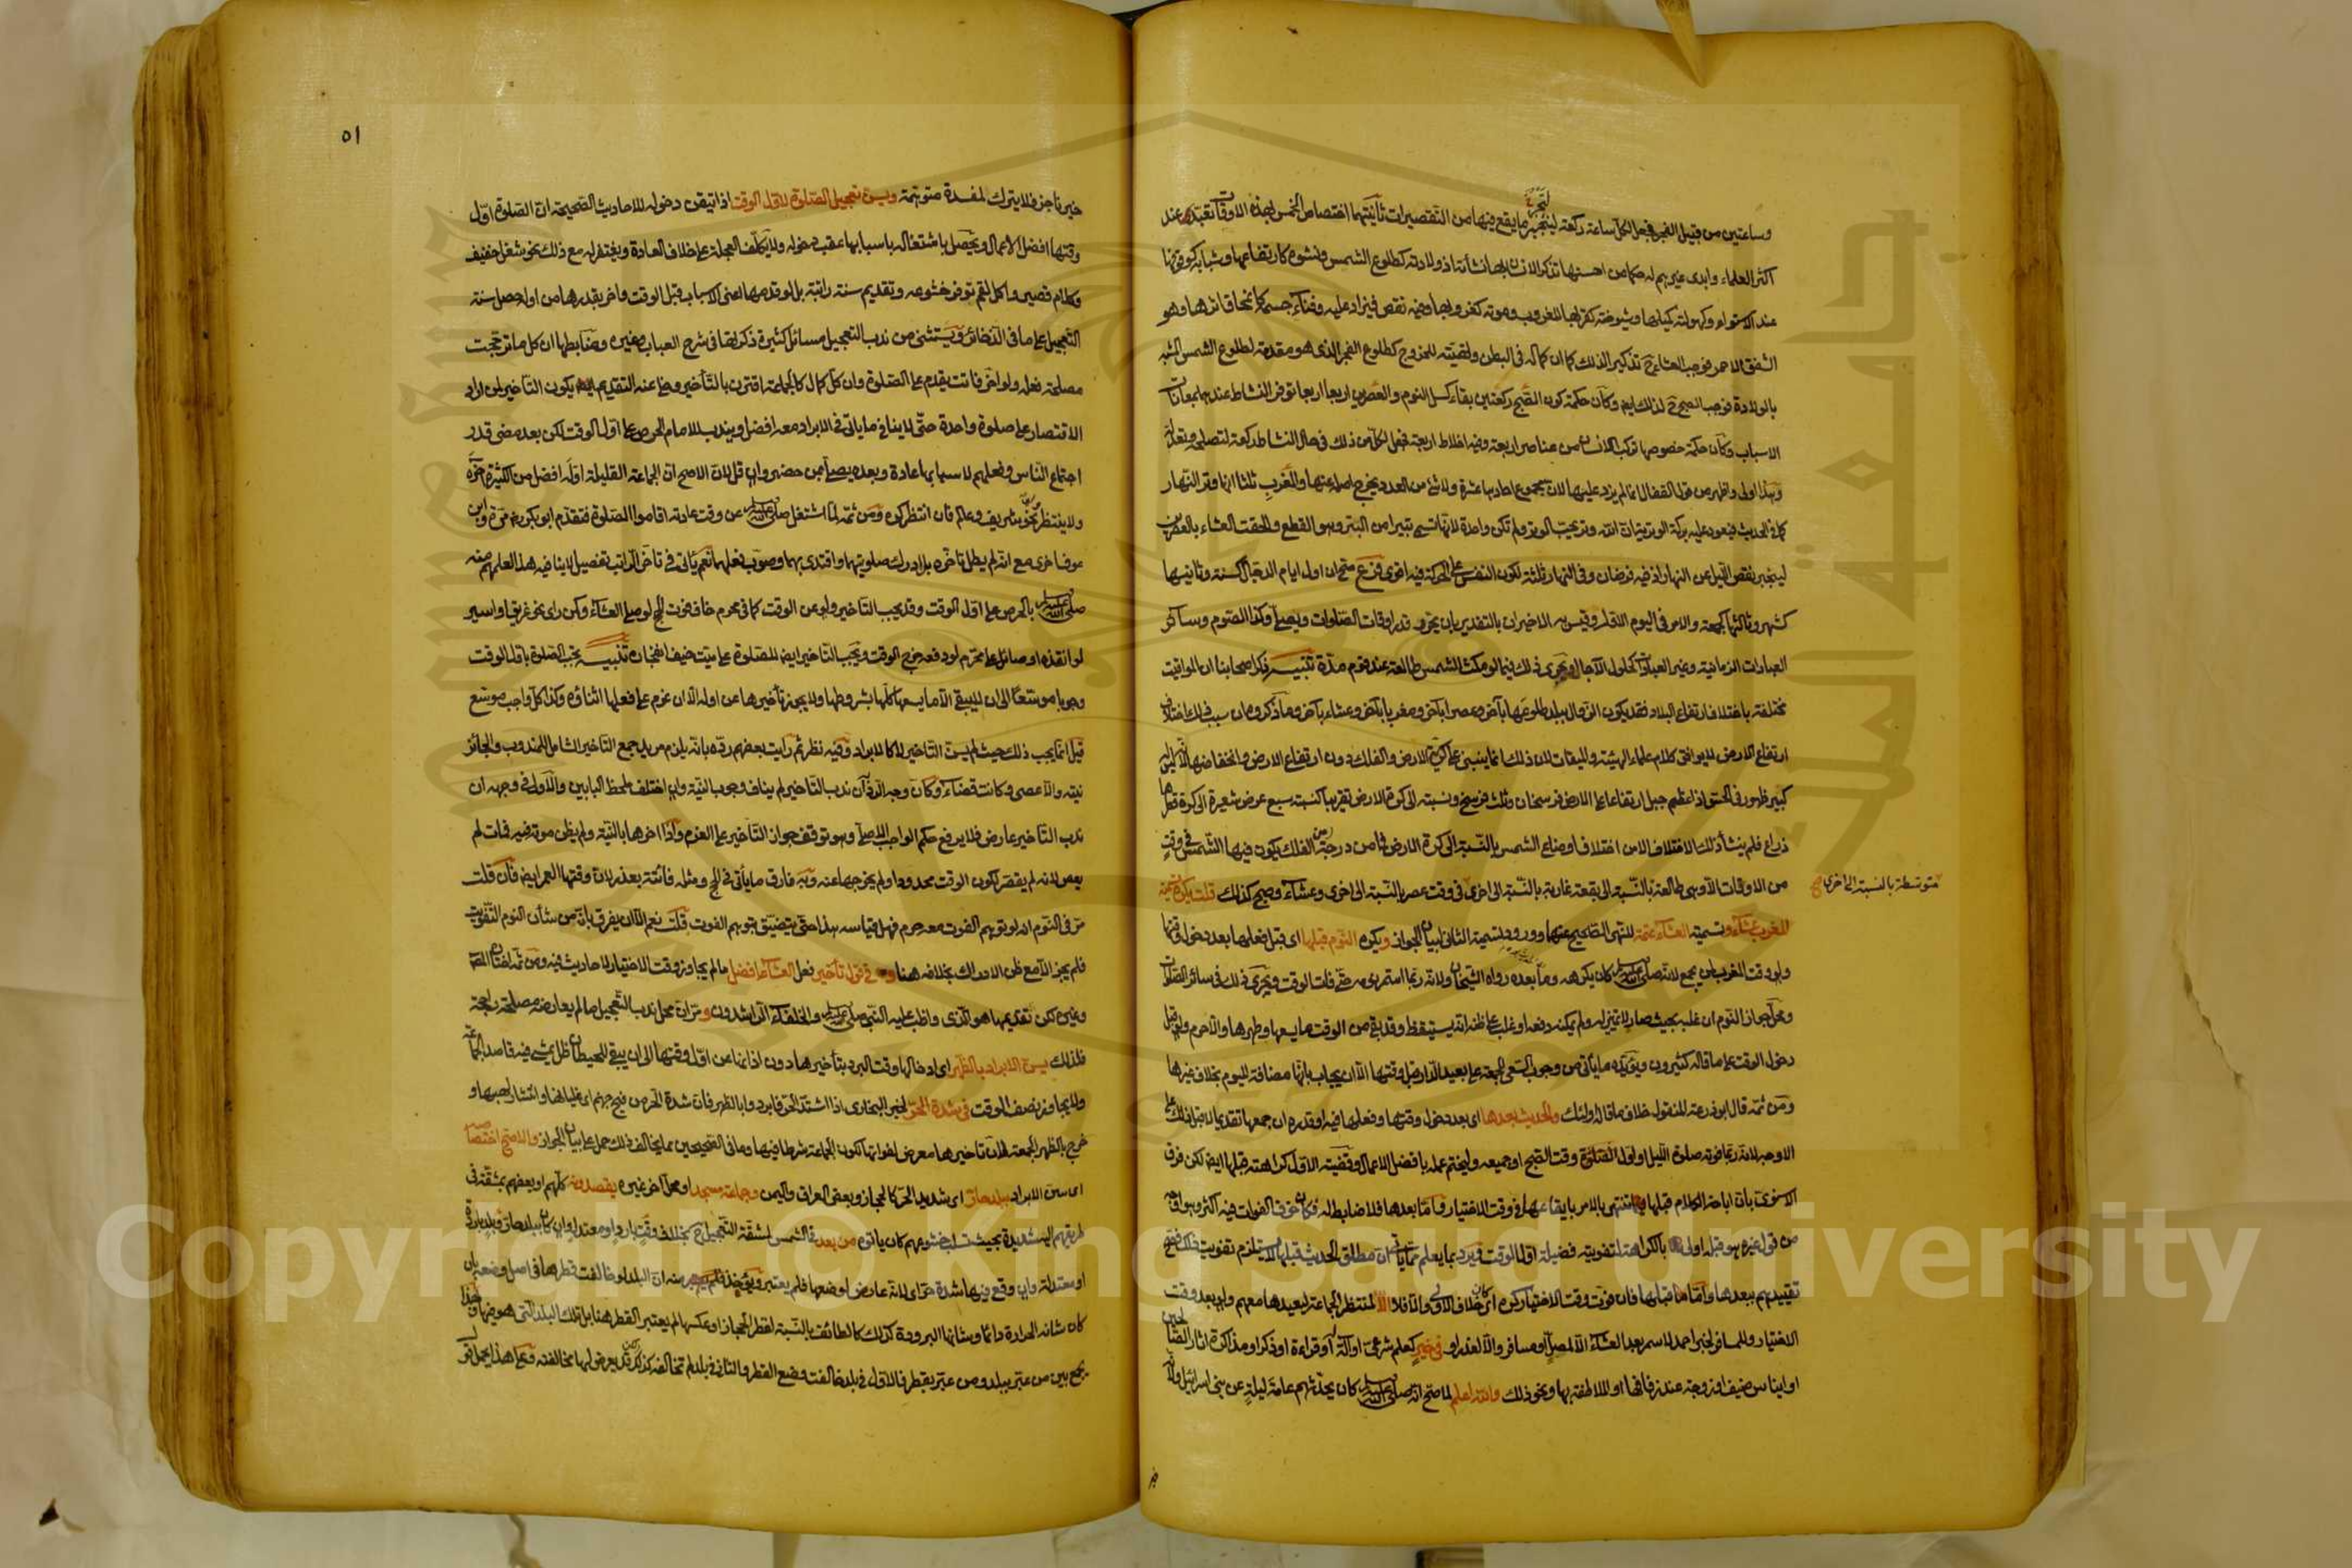 وساعتين من قبيل الفجر فجعل لكل ساعة ركعة لينجبر ما يقع فيها من التقصيرات ثانيتهما اختصاص الخمس بهذه الاوقات تعبدي عند
اكثر العلماء وابدى غيرهم له حكما من احسنها تذكر الانسان بها نشأته اذ ولادته كطلوع الشمس ونشوه كارتفاعها وشبابه كوقوفها
عند الاستواء وكهولته كميلها وشيوخته كقربها للغروب وموته كغروبها وفيه نقص فيزاد عليه وفناء جسمه كانمحاق اثرها وهو
الشفق الاحمر فوجب العشاء ح تذكيرا لذلك كما ان كماله في البطن وتهيئته للخروج كطلوع الفجر الذى هو مقدمة لطلوع الشمس المشبه
بالولادة فوجب الصبح ح لذلك ايضا وكأن حكمة كون الصبح ركعتين بقاء كسل النوم والعصرين اربعا اربعا توفر النشاط عندهما بمعاناة
الاسباب وكأن حكمة خصوصها تركب الانسان من عناصر اربعة وفيه اخلاط اربعة فجعل لكل من ذلك في حال النشاط ركعة لتصلحه وتعدله
وهذا اولى واظهر من قول القفال انما لم يزد عليها لان مجموع احادها عشرة ولا شئ من العدد يخرج اصله عنها والمغرب ثلثا انها وتر النهار
كما في الحديث فيعود عليه بركة الوترية ان الله وتر يحب الوتر ولم تكن واحدة لانها تسمى بتيرا من البتر وهو القطع والحقت العشاء بالعصرين
لينجبر نقص الليل عن النهار اذ فيه فرضان وفي النهار ثلثة لكون النفس على الحركة فيه اقوى فرع صح ان اول ايام الدجال كسنة وثانيها
كشهر وثالثها كجمعة والامر في اليوم الاول وقيس به الاخيران بالتقدير بان يحرر قدر اوقات الصلوات ويصلى وكذا الصوم وسائر
العبادات الزمانية وغير العبادة كحلول الآجال ويجرى ذلك فيما لو مكث الشمس طالعة عند قوم مدة تنبيه ذكر اصحابنا ان المواقيت
مختلفة باختلاف ارتفاع البلاد فقد يكون الزوال ببلد طلوعها بآخر وعصرا بآخر ومغربا بآخر وعشاء بآخر وما ذكروه من سبب ذلك اختلاف
ارتفاع الارض لا يوافق كلام علماء الهيئة والميقات لان ذلك انما ينبنى على كرية الارض والفلك دون ارتفاع الارض وانخفاضها لانه ليس
كبير ظهور في الحس اذ اعظم جبل ارتفاعا على الارض فرسخان وثلث فرسخ ونسبته الى كرة الارض تقريبا كنسبة سبع عرض شعيرة الى كرة قطرها
ذراع فلم ينشأ ذلك الاختلاف الا من اختلاف اوضاع الشمس بالنسبة الى كرة الارض فما من درجة من الفلك يكون فيها الشمس في وقت
من الاوقات الا وهى طالعة بالنسبة الى بقعة غاربة بالنسبة الى اخرى في وقت عصر بالنسبة الى اخرى وعشاء وصبح كذلك قلت يكره تسمية
متوسطة بالنسبة الى اخرى صح
المغرب عشاء وتسمية العشاء عتمة للنهى الصحيح عنهما وورود تسمية الثاني لبيان الجواز ويكره النوم قبلها اى قبل فعلها بعد دخول وقتها
ولو وقت المغرب لمن يجمع لانه صلى الله عليه وسلم كان يكرهه وما بعده رواه الشيخان ولانه ربما استمر به حتى فات الوقت ويجرى ذلك في سائر الصلوات
ومحل جواز النوم ان غلبه بحيث صار لا تمييز له ولم يمكنه دفعه او غلب على ظنه انه يستيقظ وقد بقى من الوقت ما يسعها وطهرها والا حرم ولو قبل
دخول الوقت على ما قاله كثيرون ويؤيده ما يأتي من وجوب السعى للجمعة على بعيد الدار قبل وقتها الا ان يجاب بانها مضافة لليوم بخلاف غيرها
ومن ثمه قال ابو زرعة المنقول خلاف ما قال اولئك والحديث بعدها اى بعد دخول وقتها وفعلها فيه او قدره ان جمعها تقديما لا قبل ذلك على
الاوجه لانه ربما فوته صلوة الليل او اول الصلوة وقت الصبح او جميعه وليختم عمله بافضل الاعمال وقضية الاول كراهته قبلها ايضا لكن فرق
الاسنوى بان اباحة الكلام قبلها تنتهى بالامر بايقاعها في وقت الاختيار واما بعدها فلا ضابط له فكان خوف الفوات فيه اكثر وهو اوجه
من قول غيره هو قبله اولى بالكراهة لتفويته فضيلة اول الوقت ويرد بما يعلم مما يأتي ان مطلق الحديث قبلها لا يستلزم تفويت ذلك فصح
تقييدهم ببعدها واما ما قبلها فان فوت وقت الاختيار كره اى كان خلاف الاولى والا فلا الا لمنتظر الجماعة ليعيدها معهم ولو بعد وقت
الاختيار وللمسافر لخبر احمد لا سمر بعد العشاء الا لمصل او مسافر والا لعذر او في خير كعلم شرعى او آلة او قراءة او ذكر او مذاكرة آثار الصالحين
او ايناس ضيف او زوجة عند زفافها او الملاطفة بها ونحو ذلك والله اعلم لما صح انه صلى الله عليه وسلم كان يحدثهم عامة ليلة عن بنى اسرائيل ولان
٥١
خير ناجز فلا يترك لمفسدة متوهمة ويسن تعجيل الصلوة لاول الوقت اذا تيقن دخوله للاحاديث الصحيحة ان الصلوة اول
وقتها افضل الاعمال ويحصل باشتغاله باسبابها عقب دخوله ولا يكلف العجلة على خلاف العادة ويغتفر له مع ذلك نحو شغل خفيف
وكلام قصير واكل لقم توفر خشوعه وتقديم سنة راتبة بل لو قدمها اعنى الاسباب قبل الوقت واخر بقدرها من اوله حصل سنة
التعجيل على ما في الذخائر ويستثنى من ندب التعجيل مسائل كثيرة ذكرتها في شرح العباب وغيره وضابطها ان كل ما ترجحت
مصلحة فعله ولو اخر فاتت يقدم على الصلوة وان كل كمال كالجماعة اقترن بالتأخير وخلا عنه التقديم يكون التأخير لمن اراد
الاقتصار على صلوة واحدة حتى لا ينافي ما ياتي في الابراد معه افضل ويندب للامام الحرص على اول الوقت لكن بعد مضى قدر
اجتماع الناس وفعلهم لاسبابها عادة وبعده يصلى بمن حضر وان قل لان الاصح ان الجماعة القليلة اوله افضل من الكثيرة آخره
ولا ينتظر نحو شريف وعالم فان انتظر كره ومن ثمه لما اشتغل صلى الله عليه وسلم عن وقت عادته اقاموا الصلوة فتقدم ابو بكر مرة وابن
عوف اخرى مع انه لم يطل تاخره بل ادرك صلوتهما واقتدى بهما وصوب فعلهما نعم يأتي في تاخر الراتب تفصيل لا ينافيه هذا لعلمهم منه
صلى الله عليه وسلم بالحرص على اول الوقت وقد يجب التاخير ولو عن الوقت كما في محرم خاف فوت الحج لو صلى العشاء وكمن راى نحو غريق او اسير
لو انقذه او صائل على محترم لو دفعه خرج الوقت ويجب التاخير ايضا للصلوة على ميت خيف انفجاره تنبيه يجب الصلوة باول الوقت
وجوبا موسعا الى ان لا يبقى الا ما يسعها كلها بشروطها ولا يجوز تأخيرها عن اوله الا ان عزم على فعلها اثناءه وكذا كل واجب موسع
قيل انما يجب ذلك حيث لم يسن التاخير لا كالابراد وفيه نظر ثم رايت بعضهم رده بانه يلزم مريد جمع التاخير الشامل للمندوب والجائز
نيته والا عصى وكانت قضاء وكأن وجه الرد ان ندب التاخير لم يناف وجوب النية وان اختلف ملحظ البابين والاولى في وجهه ان
ندب التاخير عارض فلا يرفع حكم الواجب الاصلى وهو توقف جواز التأخير على العزم واذا اخرها بالنية ولم يظن موته فيه فمات لم
يعص لانه لم يقصر لكون الوقت محدودا ولم يخرجها عنه وبه فارق ما يأتي في الحج ومثله فائتة بعذر لان وقتها العمر ايضا فان قلت
مر في النوم انه لو توهم الفوت معه حرم فهل قياسه هذا حتى يتضيق بتوهم الفوت قلت نعم الا ان يفرق بانه من شأن النوم التفويت
فلم يجز الا مع ظن الادراك بخلافه هنا وفي قول تأخير فعل العشاء افضل ما لم يجاوز وقت الاختيار لاحاديث فيه ومن ثمه اختاره
وغيره لكن تقديمها هو الذى واظب عليه النبى صلى الله عليه وسلم والخلفاء الراشدون ومر ان محل ندب التعجيل ما لم يعارضه مصلحة راجحة
فلذلك يسن الابراد بالظهر اى ادخالها وقت البرد بتأخيرها دون اذانها عن اول وقتها الى ان يبقى للحيطان ظل يمشى فيه قاصد الجماعة
ولا يجاوز نصف الوقت في شدة الحر لخبر البخارى اذا اشتد الحر فابردوا بالظهر فان شدة الحر من فيح جهنم اى غليانها وانتشار لهبها و
خرج بالظهر الجمعة لان تاخيرها معرض لفواتها لكون الجماعة شرطا فيها وما في الصحيحين مما يخالف ذلك حمل على بيان الجواز والاصح اختصاصه
اى سن الابراد ببلد حار اى شديد الحر كالحجاز وبعض العراق واليمن وجماعة مسجد او محل آخر غيره يقصدونه كلهم او بعضهم بمشقة في
طريقهم اليه شديدة بحيث تسلب خشوعهم كان ياتوه من بعد في الشمس لمشقة التعجيل ح بخلاف وقت بارد او معتدل وان كان ببلد حار وبلد باردة
او معتدلة وان وقع فيها شدة حر اى لانه عارض لوضعها فلم يعتبر ويؤخذ منه ان البلد لو خالفت قطرها في اصل وضعه بان
كان شانه الحرارة دائما وشانها البرودة كذلك كالطائف بالنسبة لقطر الحجاز او عكسها لم يعتبر القطر هنا بل تلك البلد التى هو فيها وبهذا
يجمع بين من عبر ببلد ومن عبر بقطر فالاول في بلد خالفت وضع القطر والثاني في بلد لم تخالفه كذلك لكن قد يعرض لها مخالفته وعلى هذا يحمل قول